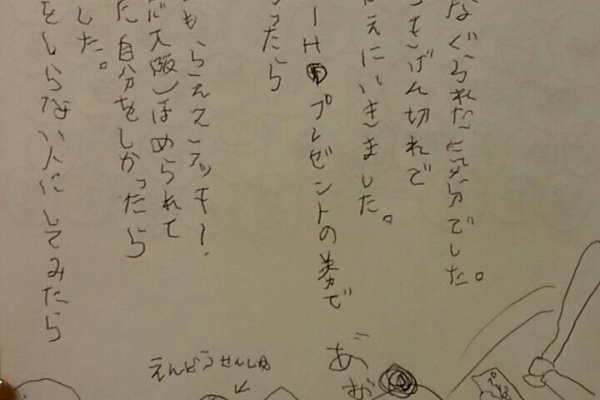 なぐられた気分でした。
きげん切れで
えにいきました。
ーHプレゼントの券で
ったら
もらえてラッキー!
大阪)ほめられて
た自分をしかったら
した。
をしらない人にしてみたら
えんどうせんしゅ